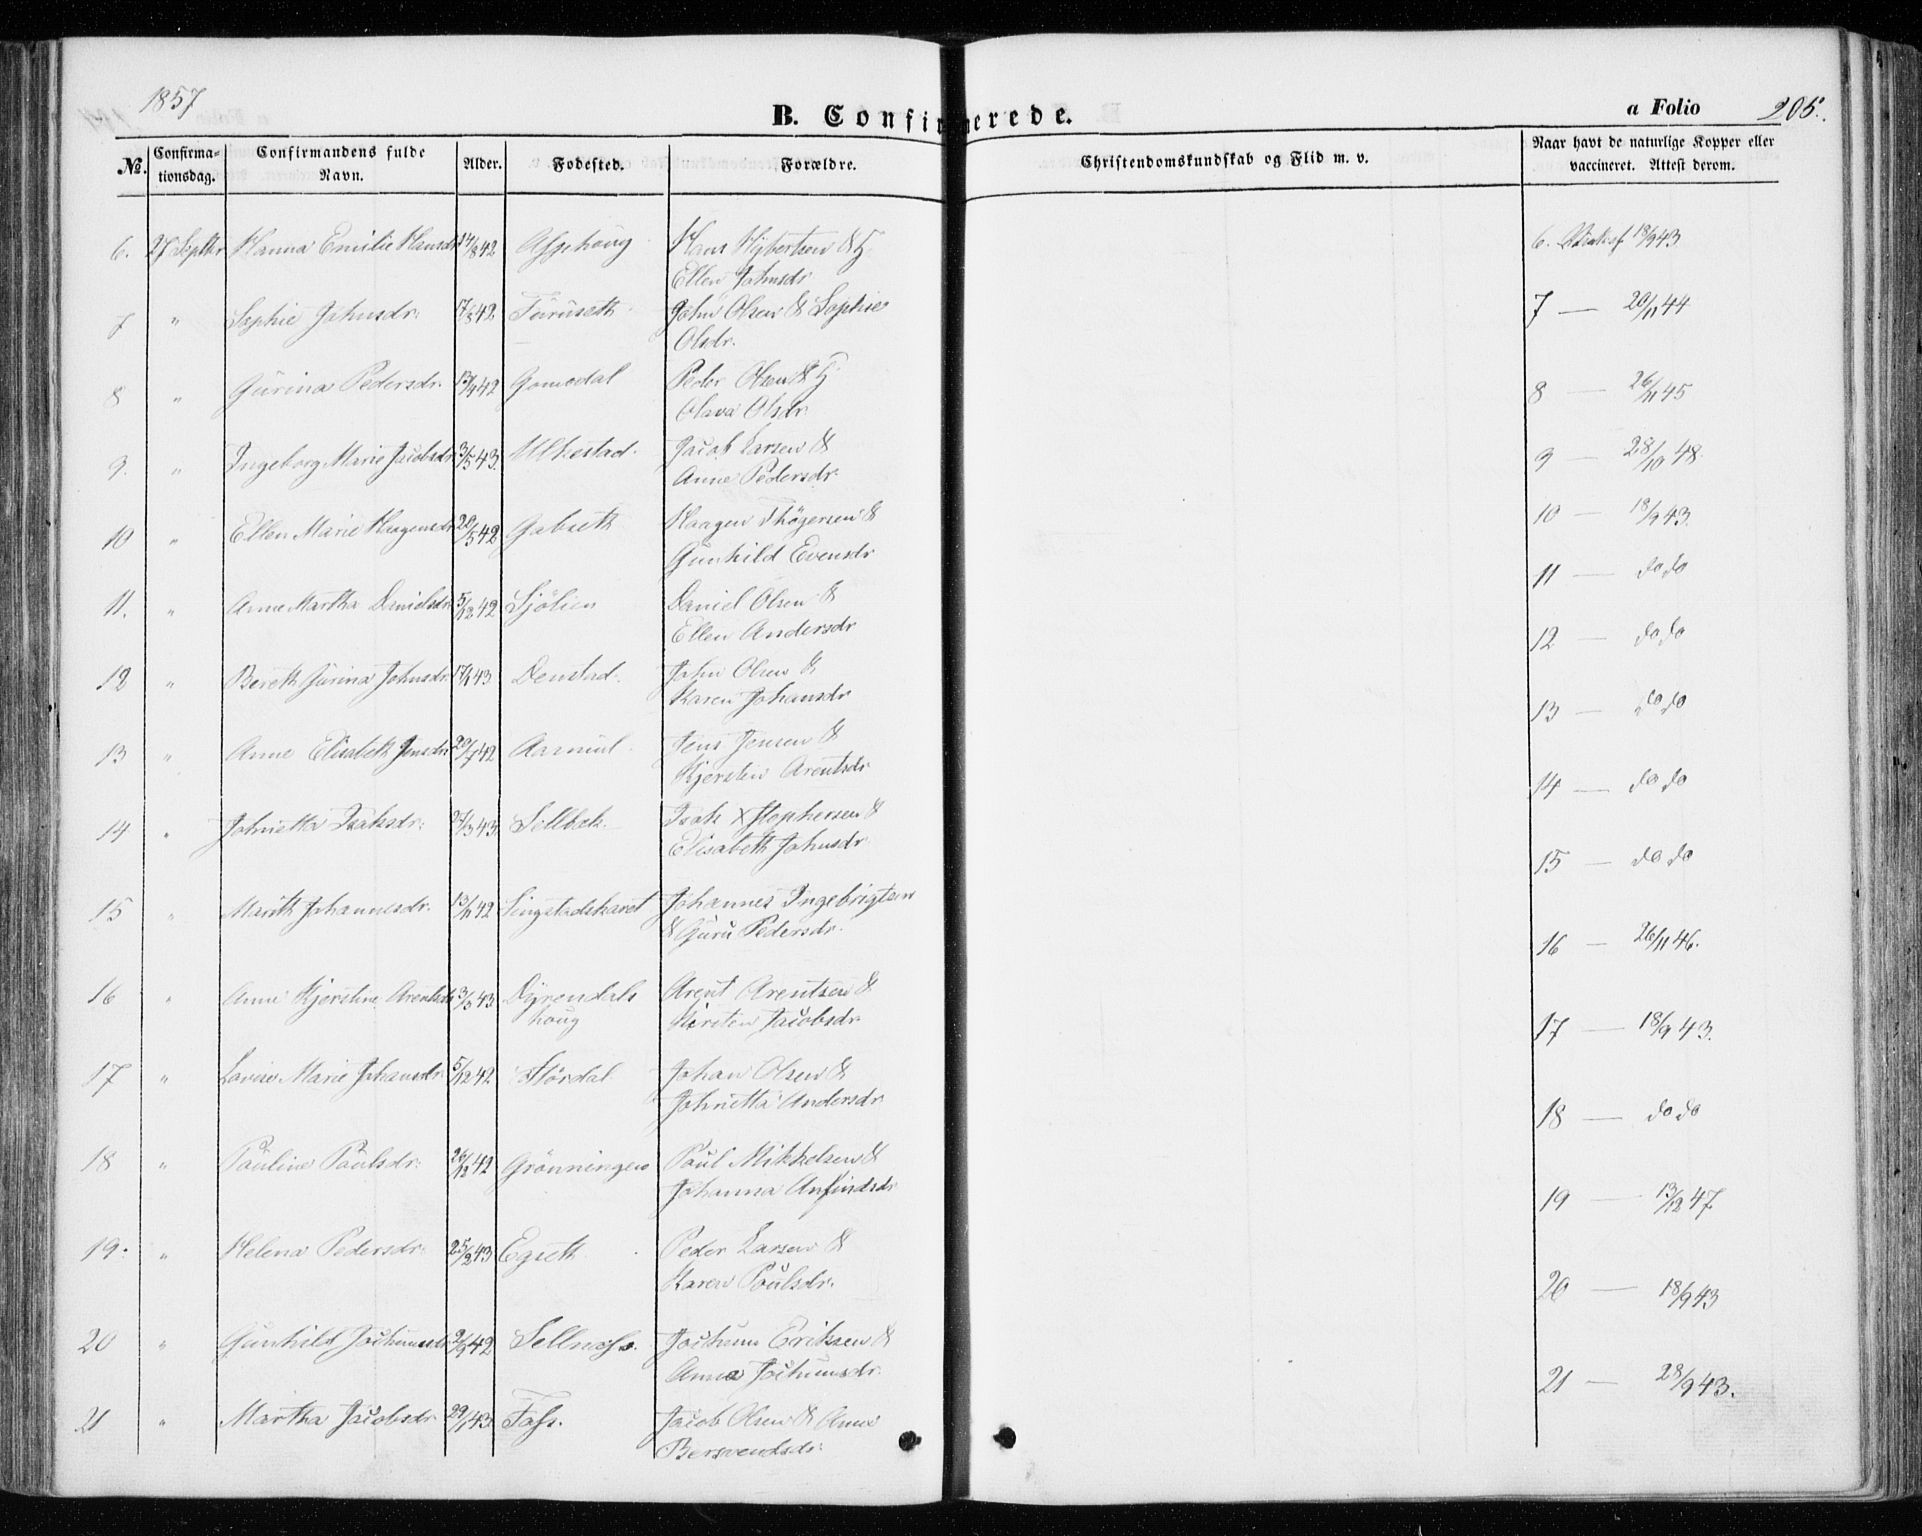 1857
B. Confirmerede.
a Folio 205.
No. Confirma-tionsdag. Confirmandens fulde Navn. Alder. Fødested. Forældre. Christendomskundskab og Flid m. v. Naar havt de naturlige Kopper eller vaccineret. Attest derom.
6. 27 Septbr Hanna Emilie Hansdr 14/8 42 Hans Hybertsen & H 6. 18/9 43
Ellen Johnsdr
7 " Sophie Johnsdr. 17/3 42 Furuseth John Olsen & Sophie 7 — 20/11 44
Olsdr.
8 " Gurina Pedersdr. 13/9 42 Gomodal Peder Olsen & H 8 — 26/11 45
Olava Olsdr.
9. " Ingeborg Marie Jacobsdr 3/5 43. Ulkestad. Jacob Larsen & 9 — 28/10 48.
Anne Pedersdr.
10 " Ellen Marie Haagensdr 20/5 42 Gabseth Haagen Thøgersen & 10 — 18/9 43.
Gunhild Evensdr
11. " Anne Martha Danielsdr 5/12 42 Sjølien Daniel Olsen & 11 — do do
Ellen Andersdr
12 " Bereth Gurina Johnsdr. 17/1 43 Denstad. John Olsen & 12 — do do
Karen Johansdr
13 " Anne Elisabeth Jensdr 20/7 42 Aarmul Jens Jensen & 13 — do do
Kjersten Arentsdr
14 " Johnetta Isaksdr. 27/3 43. Sellbek. Isak Xstophersen & 14 — do do
Elisabeth Johnsdr.
15 " Marith Johannesdr. 13/11 42 Singstadskaret Johannes Ingebrigtsen 15 — do do
& Guru Pedersdr.
16 " Anne Kjerstine Arentsdr 3/3 43 Dyrendals Arent Arentsen & 16 — 26/11 46.
houg Kirsten Jacobsdr
17 " Lovise Marie Johansdr. 5/12 42 Størdal Johan Olsen & 17 — 18/9 43.
Johnetta Andersdr
18 " Pauline Paulsdr. 26/12 42 Grønningen Paul Mikkelsen & 18 — do do
Johanna Anfindsdr
19. " Helena Pedersdr. 25/2 43 Egseth Peder Larsen & 19 — 13/12 47.
Karen Paulsdr.
20 " Gunhild Jochumsdr 2/9 42 Sellnæss. Jochum Eriksen & 20 — 18/9 43
Anna Jochumsdr.
21 " Martha Jacobsdr 29/1 43. Foss. Jacob Olsen & Anne 21 — 28/9 43.
Bersvendsdr.